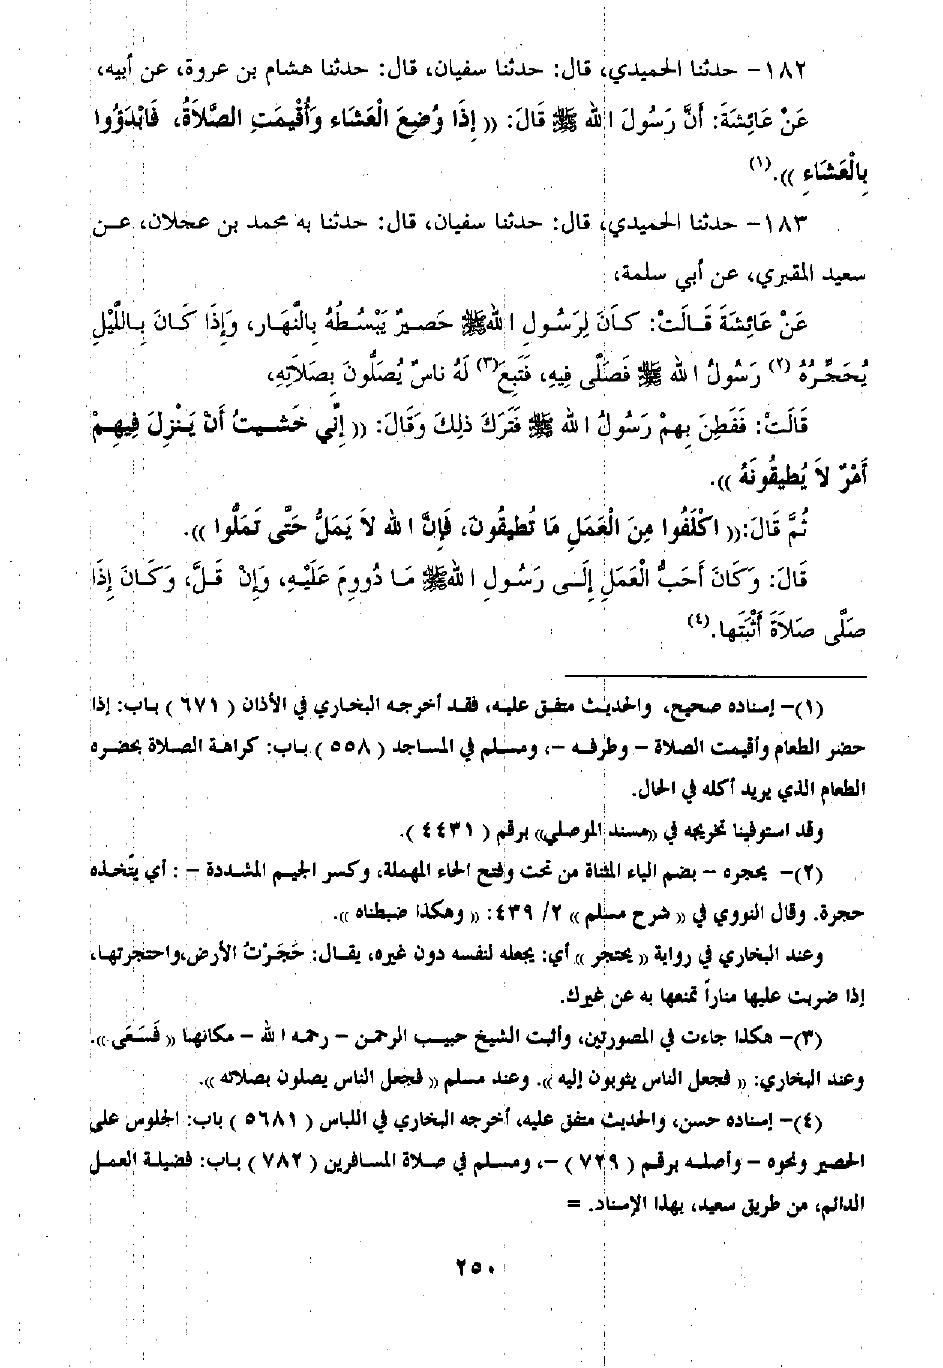 ١٨٢- حدثنا الحميدي، قال: حدثنا سفيان، قال: حدثنا هشام بن عروة، عن أبيه،
عَنْ عَائِشَةَ: أَنَّ رَسُولَ اللهِ ﷺ قَالَ: (( إِذَا وُضِعَ الْعَشَاءِ وَأُقْيِمَتِ الصَّلاَةُ، فَابْدَؤُوا
بِالْعَشَاءِ )).(١)
١٨٣- حدثنا الحميدي، قال: حدثنا سفيان، قال: حدثنا به محمد بن عجلان، عـن
سعيد المقبري، عن أبي سلمة،
عَنْ عَائِشَةَ قَـالَتْ: كَـانَ لِرَسُـولِ اللهِ ﷺ حَصِيرٌ يَبْسُطُهُ بِالنَّهَارِ، وَإِذَا كَـانَ بِـاللَّيْلِ
يُحَجِّرُهُ (٢) رَسُولُ اللهِ ﷺ فَصَلَّى فِيهِ، فَتَبِعَ(٣) لَهُ نَاسٌ يُصَلُّونَ بِصَلاَتِهِ،
قَالَتْ: فَفَطِنَ بِهِمْ رَسُولُ اللهِ ﷺ فَتَرَكَ ذلِكَ وَقَالَ: (( إِنِّي خَشِيتُ أَنْ يَنْزِلَ فِيهِمْ
أَمْرٌ لاَ يُطِيقُونَهُ )).
ثُمَّ قَالَ:(( اكْلَفُوا مِنَ الْعَمَلِ مَا تُطِيقُونَ، فَإِنَّ اللهَ لاَ يَمَلُّ حَتَّى تَمَلُّوا )).
قَالَ: وَكَانَ أَحَبُّ الْعَمَلِ إِلَـى رَسُـولِ اللهِ ﷺ مَـا دُووِمَ عَلَيْهِ، وَإِنْ قَـلَّ، وَكَـانَ إِذَا
صَلَّى صَلاَةً أَثْبَتَها.(٤)
(١)- إسناده صحيح، والحديث متفق عليه، فقد أخرجه البخاري في الأذان ( ٦٧١ ) باب: إذا
حضر الطعام وأقيمت الصلاة - وطرفه -، ومسلم في المساجد ( ٥٥٨ ) باب: كراهة الصلاة بحضره
الطعام الذي يريد أكله في الحال.
وقد استوفينا تخريجه في ((مسند الموصلي)) برقم ( ٤٤٣١ ).
(٢)- يحجره - بضم الياء المثناة من تحت وفتح الحاء المهملة، وكسر الجيم المشددة - : أي يتّخذه
حجرة. وقال النووي في (( شرح مسلم )) ٢/ ٤٣٩: (( وهكذا ضبطناه )).
وعند البخاري في رواية (( يحتجر )) أي: يجعله لنفسه دون غيره، يقـال: حَجَرْتُ الأرض،واحتجرتهـا،
إذا ضربت عليها مناراً تمنعها به عن غيرك.
(٣)- هكذا جاءت في المصورتين، وأثبت الشيخ حبيب الرحمن - رحمه الله - مكانهـا (( فَسَعَى )).
وعند البخاري: (( فجعل الناس يثوبون إليه )). وعند مسلم (( فجعل الناس يصلون بصلاته )).
(٤)- إسناده حسن، والحديث متفق عليه، أخرجه البخاري في اللباس ( ٥٦٨١ ) باب: الجلوس على
الحصير ونحوه - وأصلـه برقـم ( ٧٢٩ ) -، ومسلم في صلاة المسافرين ( ٧٨٢ ) بـاب: فضيلة العمل
الدائم، من طريق سعيد، بهذا الإسناد. =
٢٥٠